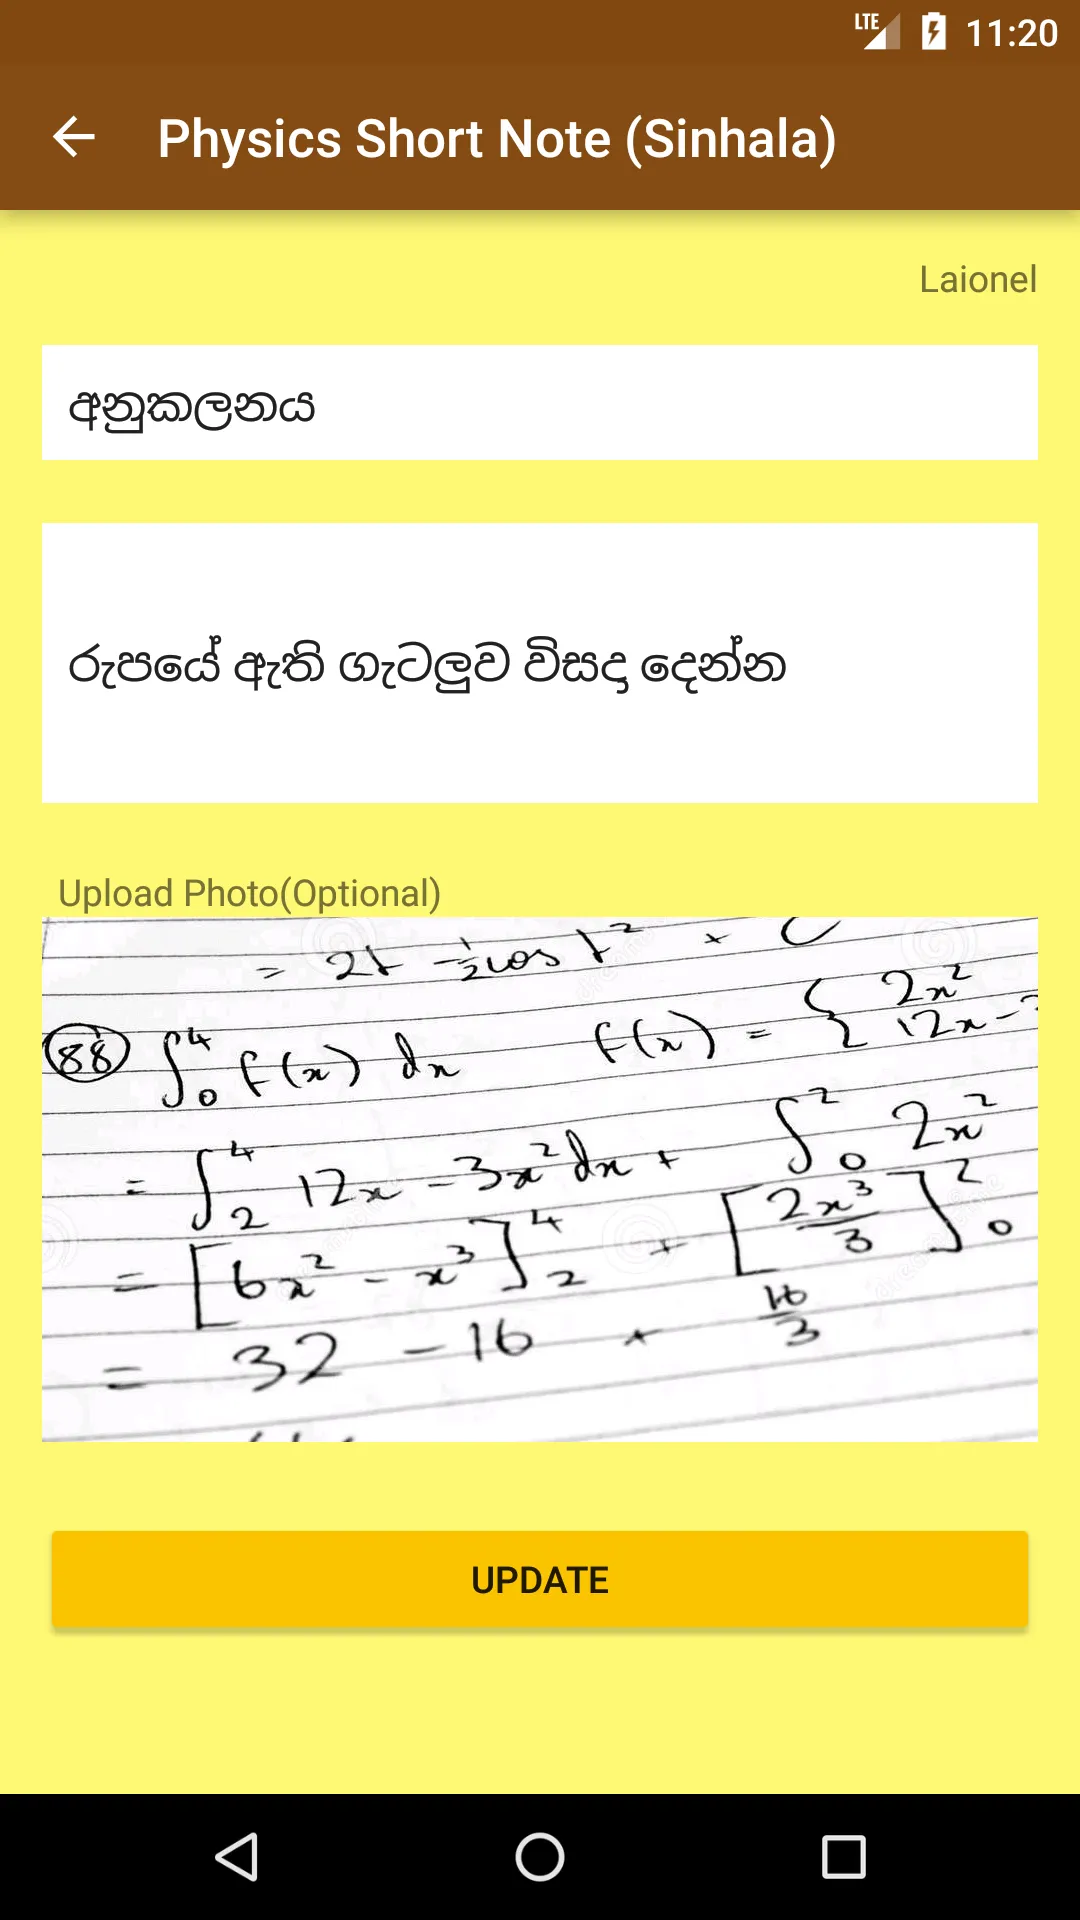 LTE 11:20
Physics Short Note (Sinhala)
Laionel
අනුකලනය
රුපයේ ඇති ගැටලුව විසදා දෙන්න
Upload Photo(Optional)
= 2t - 1/2 cos t² + C
88 ∫₀⁴ f(x) dx f(x) = { 2x²
12x -
= ∫₂⁴ 12x - 3x² dx + ∫₀² 2x²
= [6x² - x³]₂⁴ + [2x³/3]₀²
= 32 - 16 + 16/3
UPDATE